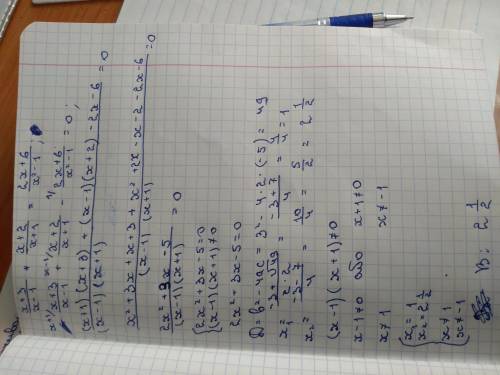 x+3/x-1 + x+2/x+1 = 2x+6/x²-1 ;
x+1/ x+3/x-1 + x-1/ x+2/x+1 - 1/ 2x+6/x²-1 = 0 ;
(x+1)(x+3) + (x-1)(x+2) - 2x - 6 / (x-1)(x+1) = 0
x² + 3x + x + 3 + x² + 2x - x - 2 - 2x - 6 / (x-1)(x+1) = 0
2x² + 3x - 5 / (x-1)(x+1) = 0
{ 2x² + 3x - 5 = 0
(x-1)(x+1) ≠ 0
2x² + 3x - 5 = 0
D = b² - 4ac = 3² - 4·2·(-5) = 49
x₁ = -3 + √49 / 2·2 = -3+7/4 = 4/4 = 1
x₂ = -3-7/4 = 10/4 = 5/2 = 2 1/2
(x-1)(x+1) ≠ 0
x-1 ≠ 0 або x+1 ≠ 0
x ≠ 1 x ≠ -1
{ x₁ = 1
x₂ = 2 1/2
{ x ≠ 1
x ≠ -1
В: 2 1/2